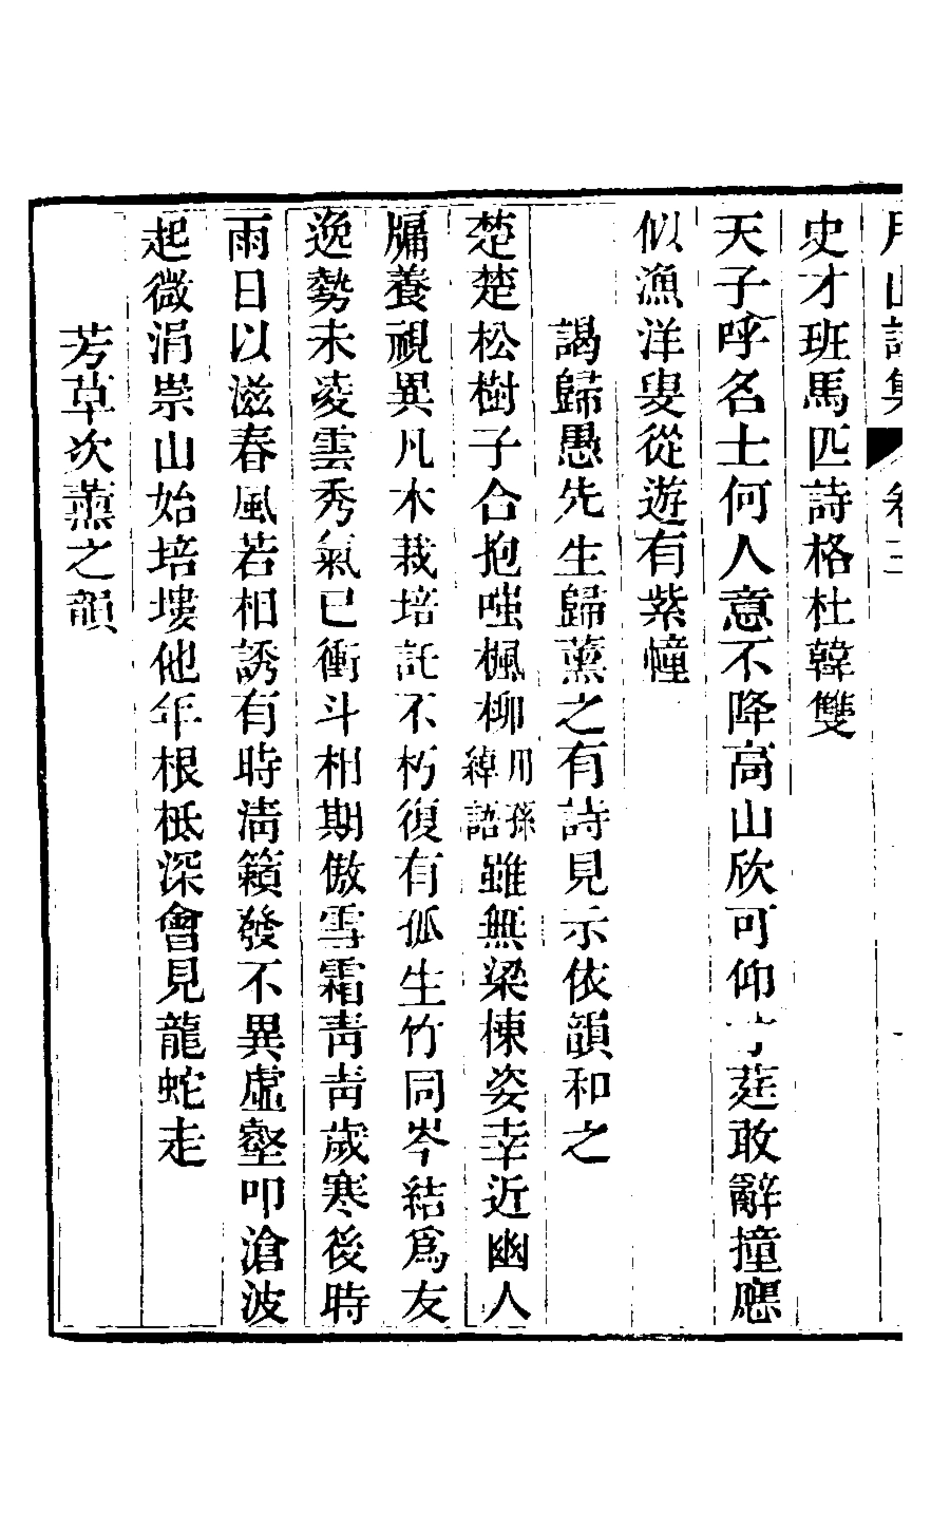 月山詩集 卷
史才班馬匹詩格杜韓雙
天子呼名士何人意不降高山欣可仰寸莛敢辭撞應
似漁洋叟從遊有紫幢
謁歸愚先生歸薰之有詩見示依韻和之
楚楚松樹子合抱嗤楓柳用孫綽語雖無梁棟姿幸近幽人
牖養視異凡木栽培託不朽復有孤生竹同岑結爲友
逸勢未凌雲秀氣已衝斗相期傲雪霜靑靑歲寒後時
雨日以滋春風若相誘有時淸籟發不異虛壑叩滄波
起微涓崇山始培塿他年根柢深會見龍蛇走
芳草次薰之韻